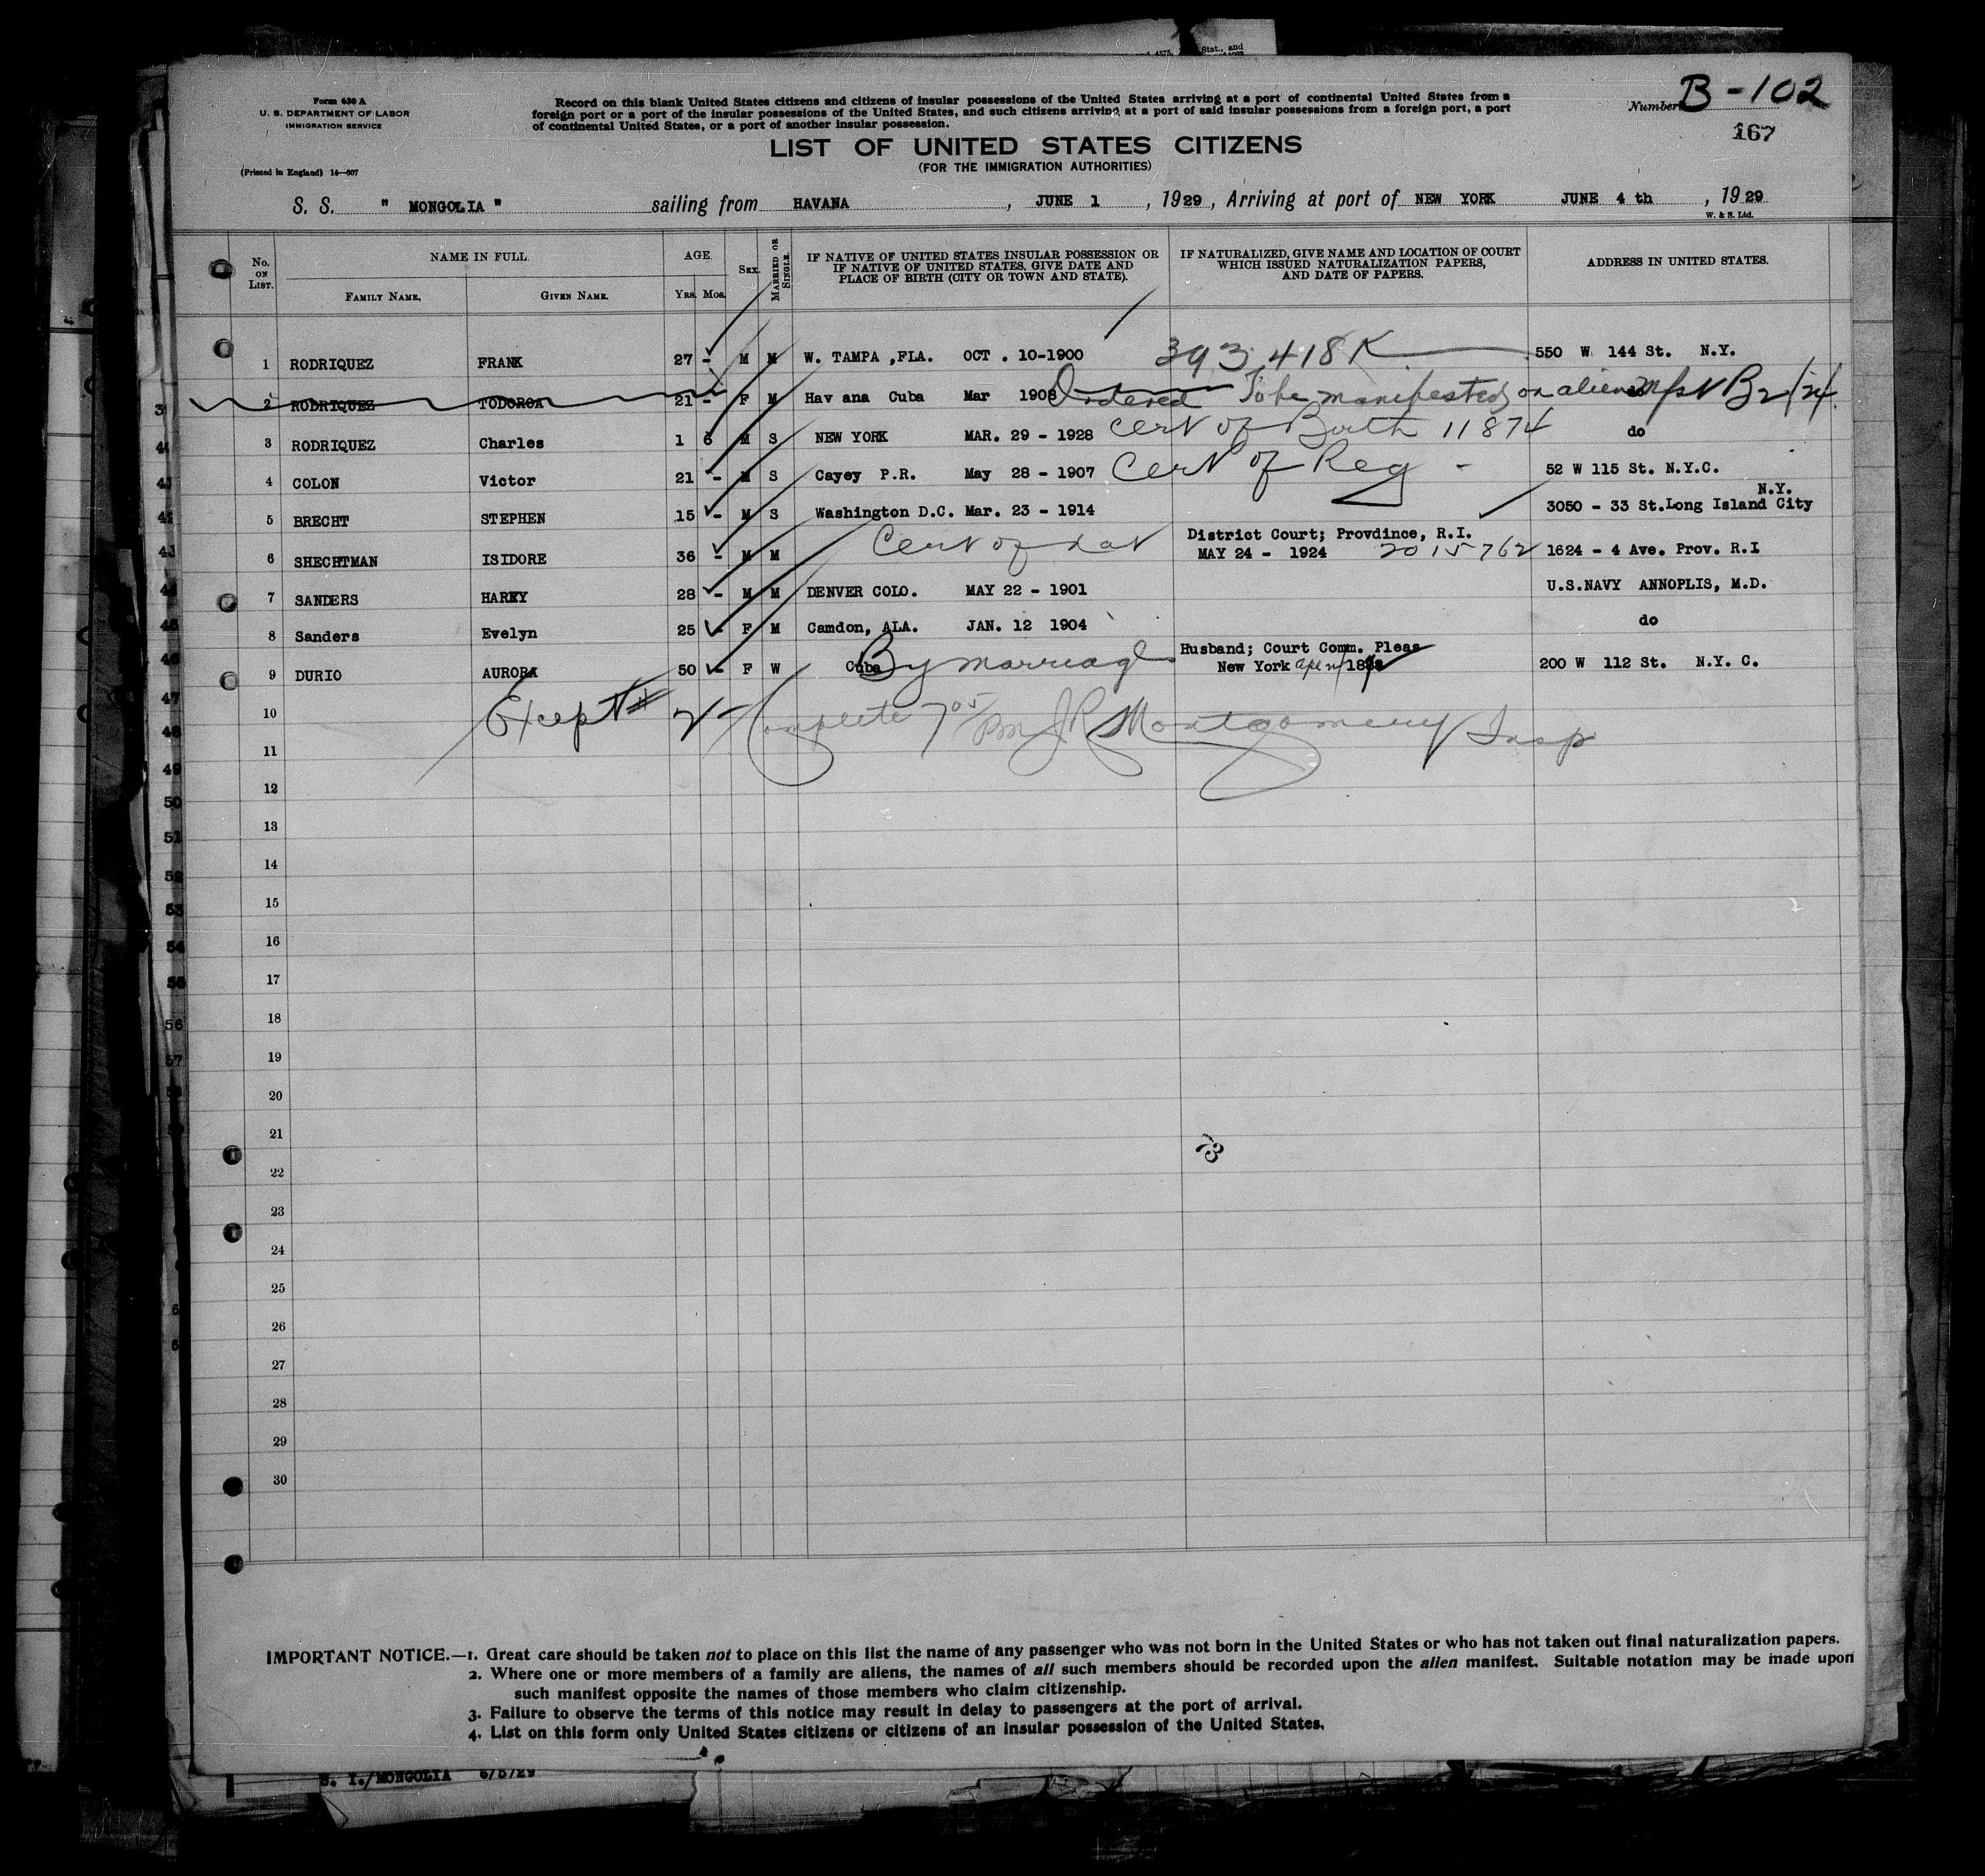 Stat., and
Form 630 A
U. S. DEPARTMENT OF LABOR
IMMIGRATION SERVICE
(Printed in England) 14—607
Record on this blank United States citizens and citizens of insular possessions of the United States arriving at a port of continental United States from a
foreign port or a port of the insular possessions of the United States, and such citizens arriving at a port of said insular possessions from a foreign port, a port
of continental United States, or a port of another insular possession.
Number B-102
167
LIST OF UNITED STATES CITIZENS
(FOR THE IMMIGRATION AUTHORITIES)
S. S. " MONGOLIA " sailing from HAVANA , JUNE 1 , 1929 , Arriving at port of NEW YORK JUNE 4 th , 1929
W. & S. Ltd.
No. ON LIST. NAME IN FULL. FAMILY NAME, GIVEN NAME. AGE. Yrs. Mos. SEX. MARRIED OR SINGLE. IF NATIVE OF UNITED STATES INSULAR POSSESSION OR IF NATIVE OF UNITED STATES, GIVE DATE AND PLACE OF BIRTH (CITY OR TOWN AND STATE). IF NATURALIZED, GIVE NAME AND LOCATION OF COURT WHICH ISSUED NATURALIZATION PAPERS, AND DATE OF PAPERS. ADDRESS IN UNITED STATES.
1 RODRIQUEZ FRANK 27 - M M W. TAMPA ,FLA. OCT . 10-1900 393,418K 550 W 144 St. N.Y.
2 RODRIQUEZ TODOROA 21 - F M Hav ana Cuba Mar 1908 Ordered To be manifested on alien do
3 RODRIQUEZ Charles 1 6 M S NEW YORK MAR. 29 - 1928 Cert of Birth 11874 do
4 COLON Victor 21 - M S Cayey P.R. May 28 - 1907 Cert of Reg - 52 W 115 St. N.Y.C.
N.Y.
5 BRECHT STEPHEN 15 - M S Washington D.C. Mar. 23 - 1914 3050 - 33 St.Long Island City
District Court; Provdince, R.I.
6 SHECHTMAN ISIDORE 36 - M M Cert of Nat MAY 24 - 1924 2015762 1624 - 4 Ave. Prov. R.I
7 SANDERS HARRY 28 - M M DENVER COLO. MAY 22 - 1901 U.S.NAVY ANNOPLIS, M.D.
8 Sanders Evelyn 25 - F M Camdon, ALA. JAN. 12 1904 do
Husband; Court Comm. Pleas
9 DURIO AURORA 50 - F W Cuba By marriage New York 200 W 112 St. N.Y. C.
10 Except # 2 - Complete 7 05 PM JR Montgomery Insp
11
12
13
14
15
16
17
18
19
20
21
22
23
24
25
26
27
28
29
30
IMPORTANT NOTICE.—1. Great care should be taken not to place on this list the name of any passenger who was not born in the United States or who has not taken out final naturalization papers.
2. Where one or more members of a family are aliens, the names of all such members should be recorded upon the alien manifest. Suitable notation may be made upon
such manifest opposite the names of those members who claim citizenship.
3. Failure to observe the terms of this notice may result in delay to passengers at the port of arrival.
4. List on this form only United States citizens or citizens of an insular possession of the United States.